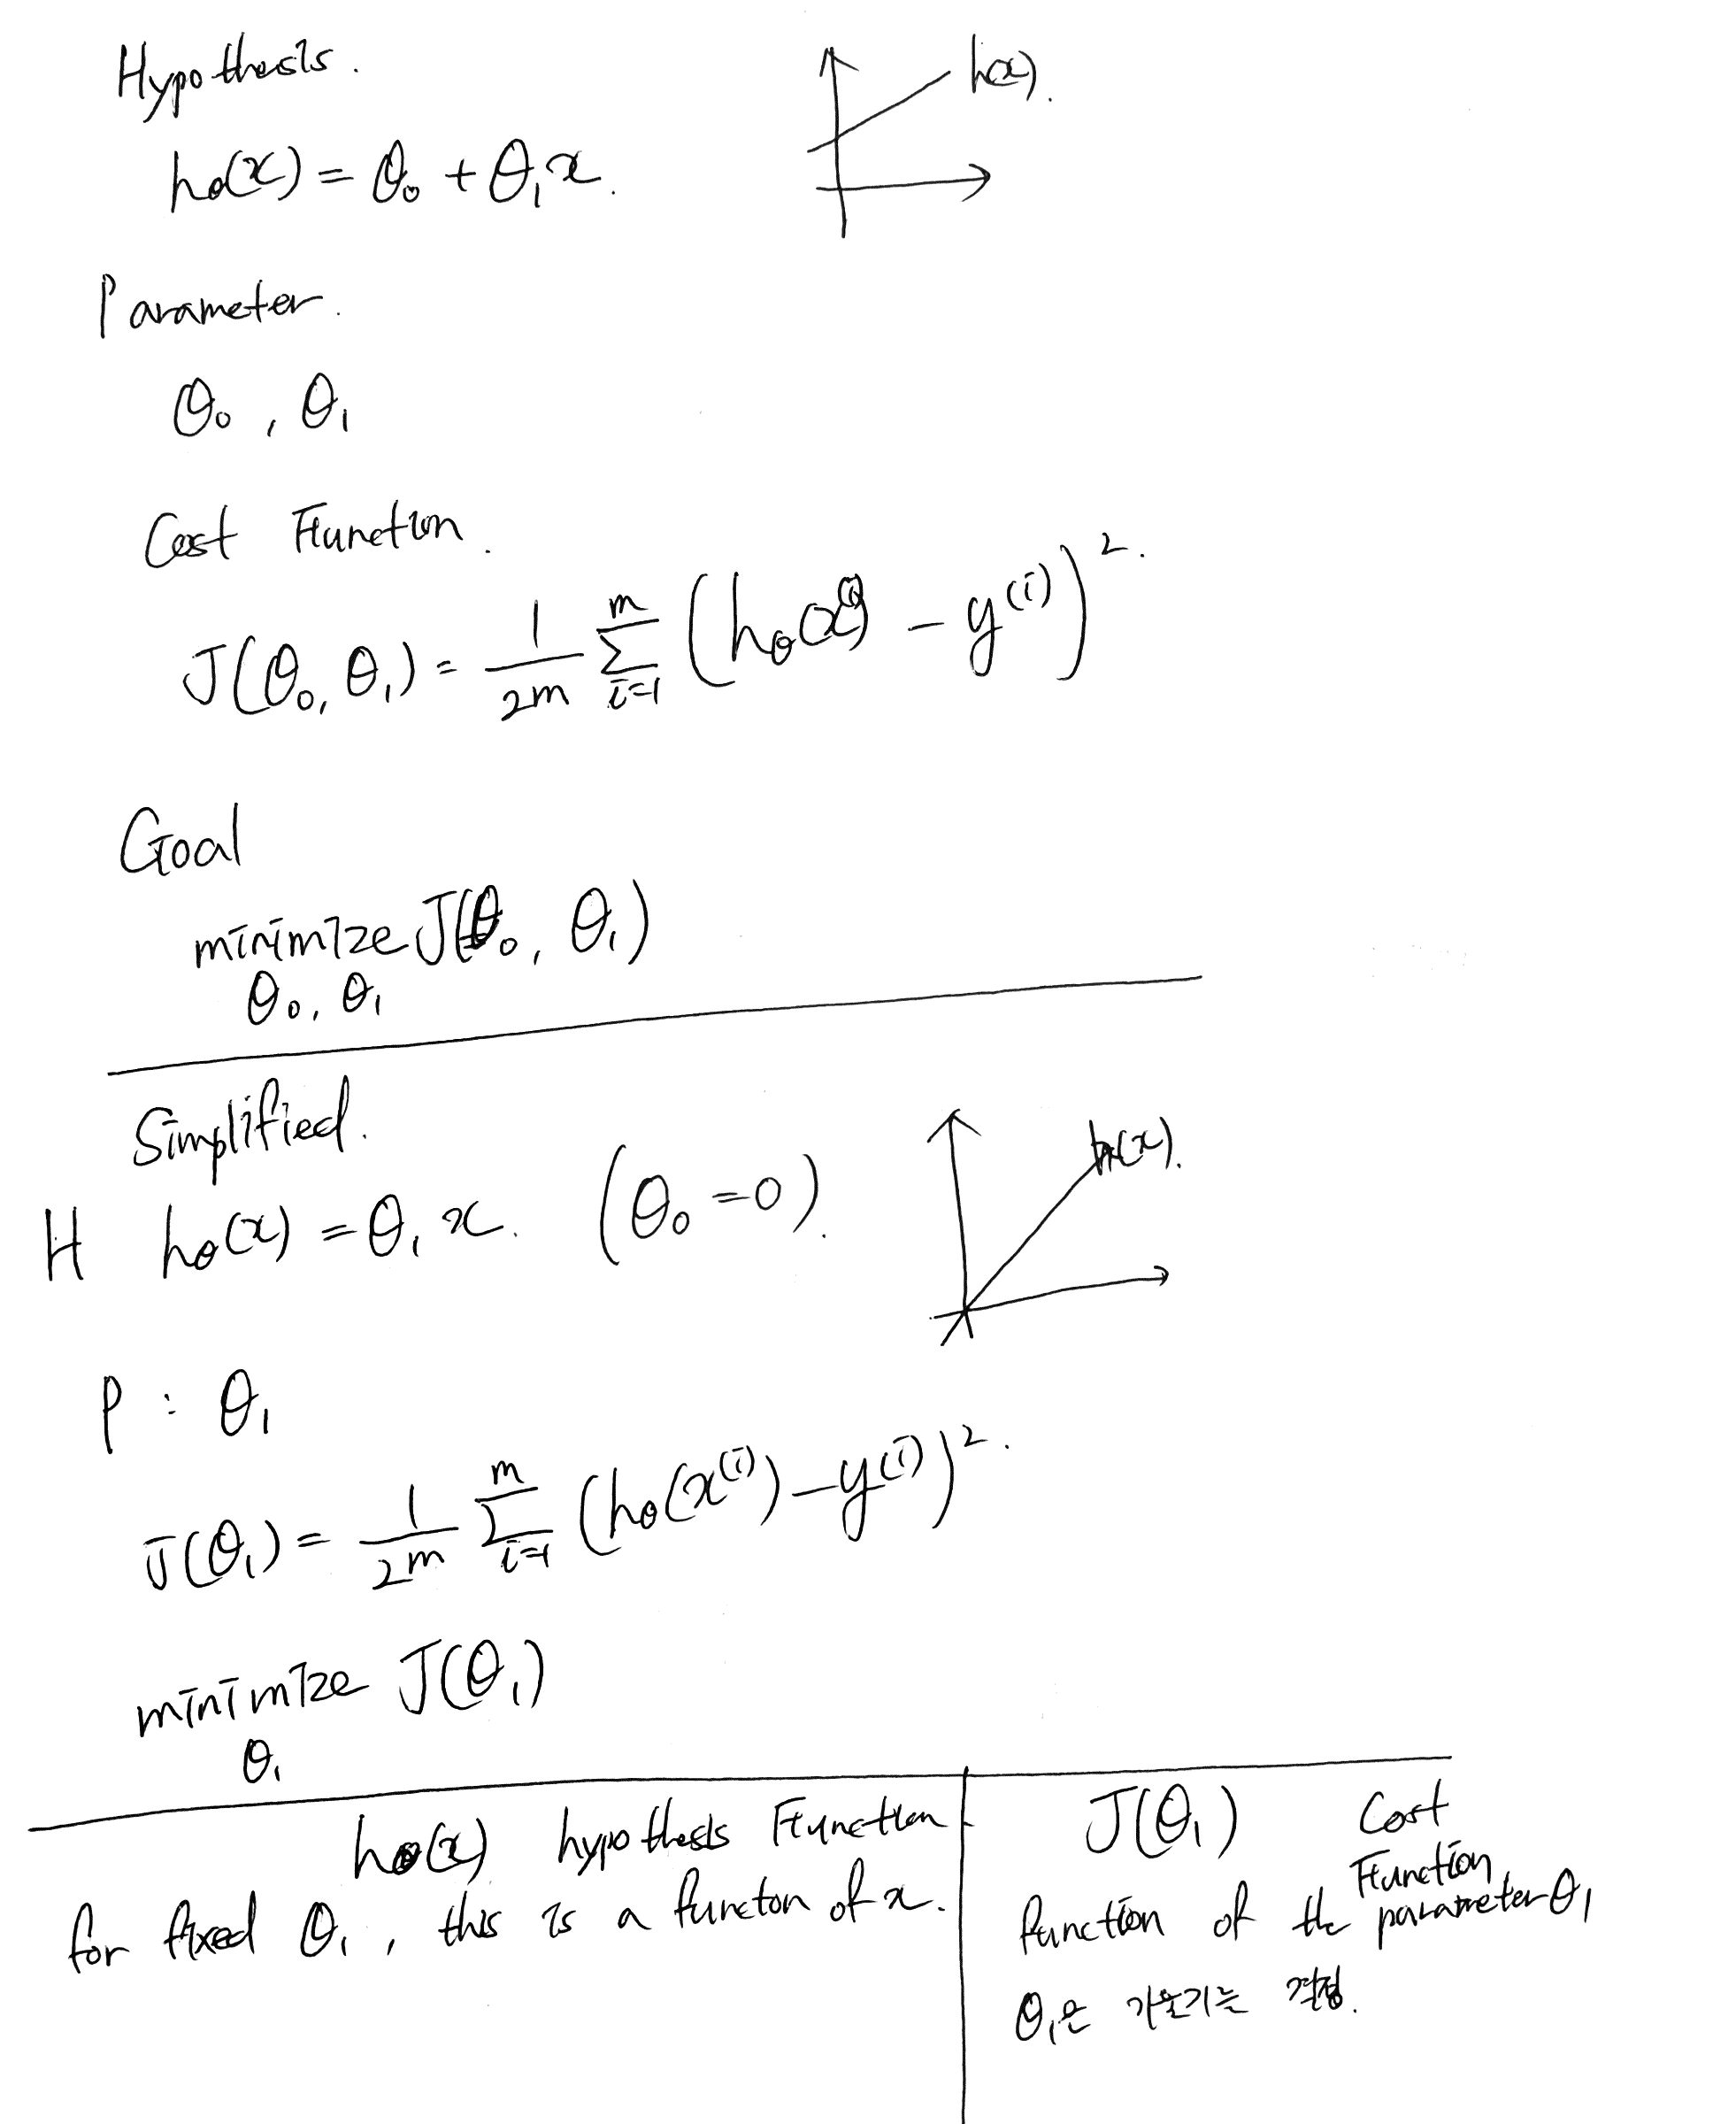 Hypothesis.
h(x).
hθ(x) = θ₀ + θ₁x.
Parameter.
θ₀, θ₁
Cost Function.
J(θ₀, θ₁) = 1/2m Σ_{i=1}^{m} (hθ(x⁽ⁱ⁾) - y⁽ⁱ⁾)².
Goal
minimize J(θ₀, θ₁)
θ₀, θ₁
Simplified.
h(x).
H hθ(x) = θ₁x. (θ₀ = 0).
P : θ₁
J(θ₁) = 1/2m Σ_{i=1}^{m} (hθ(x⁽ⁱ⁾) - y⁽ⁱ⁾)².
minimize J(θ₁)
θ₁
hθ(x) hypothesis Function
for fixed θ₁, this is a functon of x.
J(θ₁) Cost
Function
function of the parameter θ₁
θ₁은 기울기는 결정.